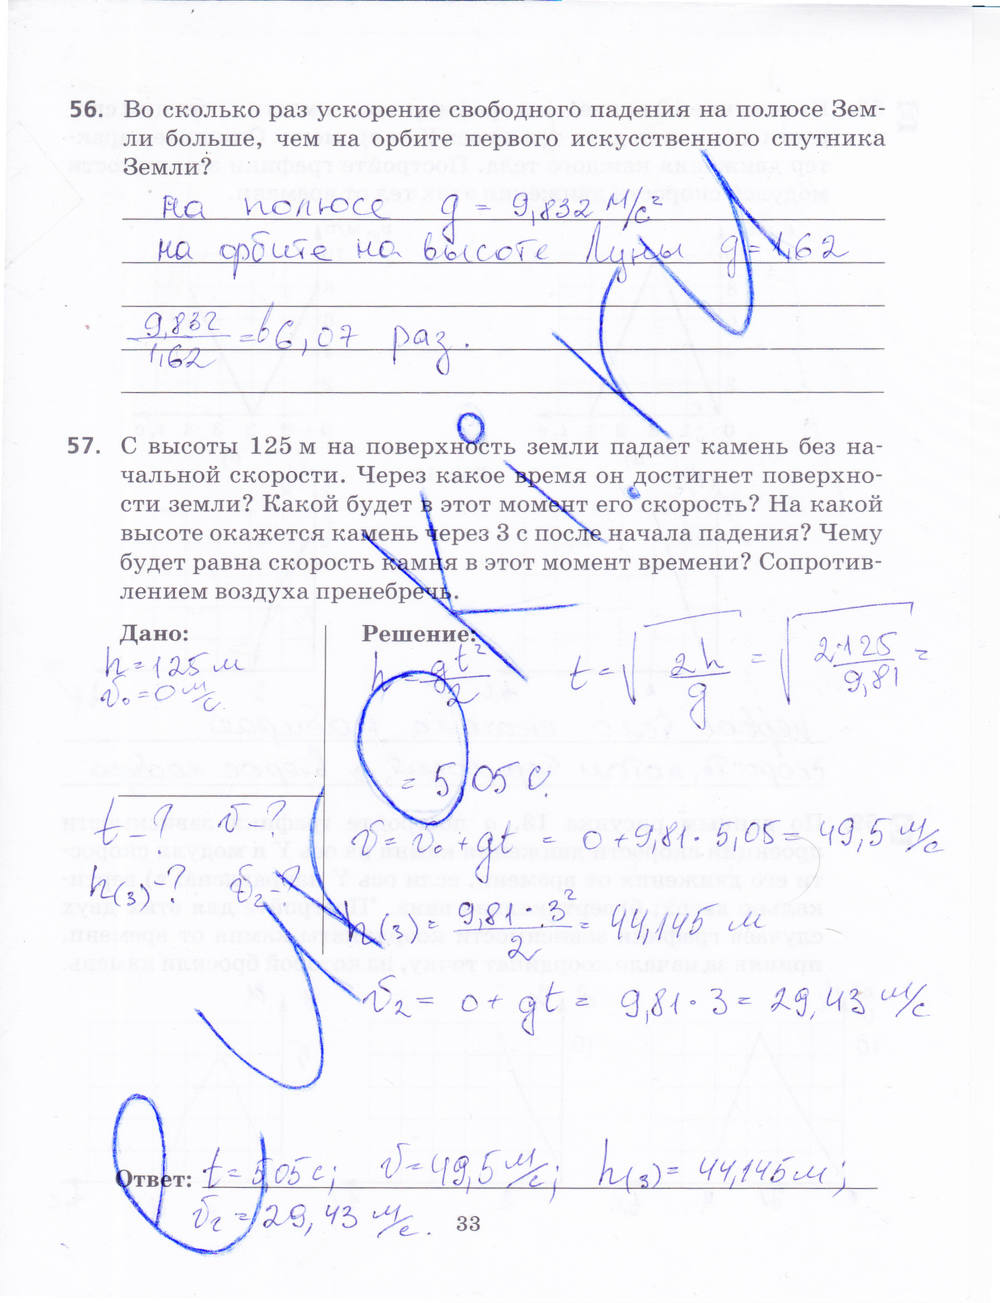 56. Во сколько раз ускорение свободного падения на полюсе Зем-
ли больше, чем на орбите первого искусственного спутника
Земли?
на полюсе g = 9,832 м/с²
на орбите на высоте Луны g = 1,62
9,832/1,62 = в 6,07 раз.
57. С высоты 125 м на поверхность земли падает камень без на-
чальной скорости. Через какое время он достигнет поверхно-
сти земли? Какой будет в этот момент его скорость? На какой
высоте окажется камень через 3 с после начала падения? Чему
будет равна скорость камня в этот момент времени? Сопротив-
лением воздуха пренебречь.
Дано:
h = 125 м
v₀ = 0 м/с
t - ? v - ?
h(3) - ? v₂ - ?
Решение:
h = gt²/2 t = √(2h/g) = √(2·125/9,81) =
= 5,05 с.
v = v₀ + gt = 0 + 9,81 · 5,05 = 49,5 м/с
h(3) = 9,81 · 3²/2 = 44,145 м
v₂ = 0 + gt = 9,81 · 3 = 29,43 м/с
Ответ: t = 5,05 с; v = 49,5 м/с; h(3) = 44,145 м;
v₂ = 29,43 м/с.
33